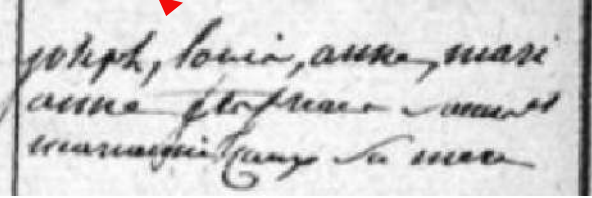 joseph, louis, anne, mari
anne
marianne caux sa mere